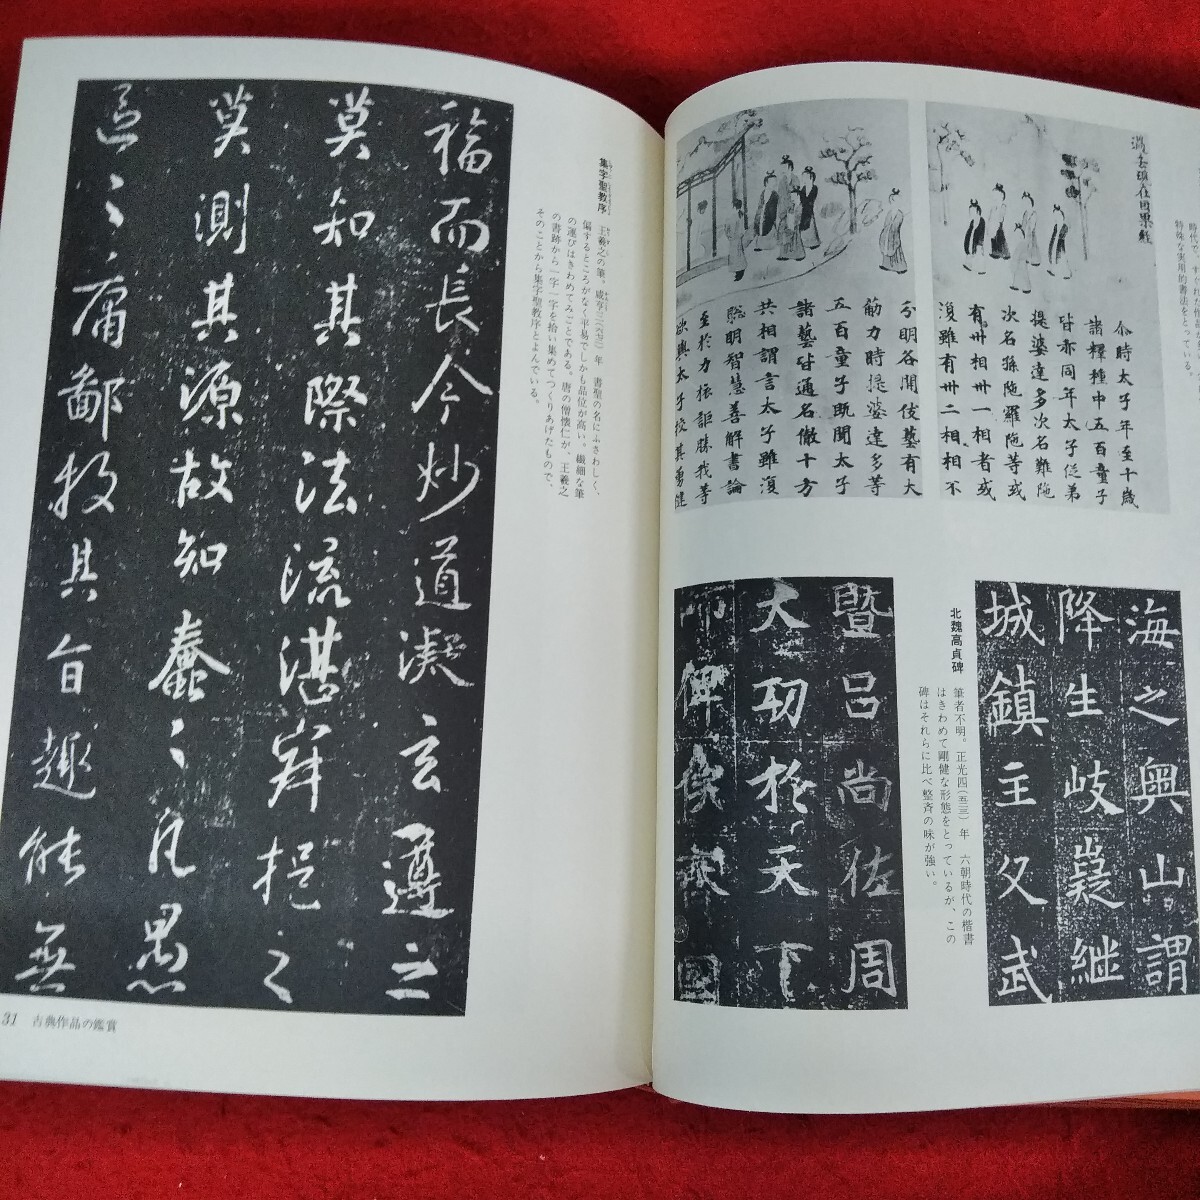 特殊な実用的書法をとっている。
過去現在因果経
尒時太子年至十歳
諸釋種中五百童子
皆亦同年太子従弟
提婆達多次名難陁
次名孫陁羅陁等或
有卅相卅一相者或
復雖有卅二相相不
分明各閑伎藝有大
筋力時提婆達多等
五百童子既聞太子
諸藝皆通名徹十方
共相謂言太子雖復
聡明智慧善解書論
至於力膂詎勝我等
欲與太子挍其勇健
海之奥山謂
降生岐嶷継
城鎮主父武
北魏高貞碑
筆者不明。正光四(五二三)年 六朝時代の楷書
はきわめて剛健な形態をとっているが、この
碑はそれらに比べ整斉の味が強い。
暨呂尚佐周
大功於天下
而俾侯齊国
集字聖教序
王羲之の筆。咸亨三(六七二)年 書聖の名にふさわしく、
偏するところがなく平易でしかも品位が高い。繊細な筆
の運びはきわめてみごとである。唐の僧懐仁が、王羲之
の書跡から一字一字を拾い集めてつくりあげたもので、
そのことから集字聖教序とよんでいる。
福而長今妙道凝玄遵之
莫知其際法流湛寂挹之
莫測其源故知蠢々凡愚
區々庸鄙投其旨趣能無
31 古典作品の鑑賞